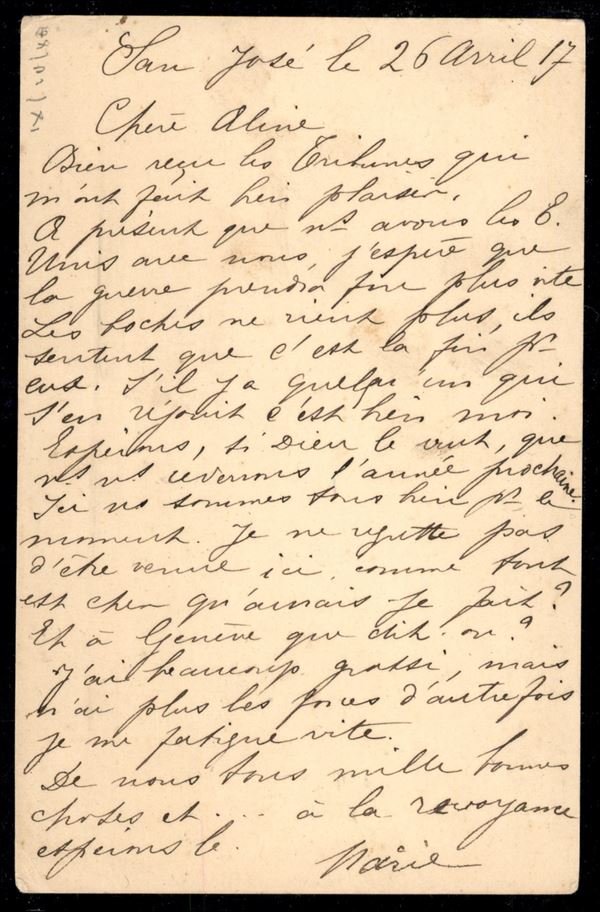 San José le 26 Avril 17
Chère Aline
Bien reçu les Tribunes qui
m'ont fait bien plaisir.
A présent que ns avons les E.
Unis avec nous, j'espère que
la guerre prendra fin plus vite
Les boches ne rient plus, ils
sentent que c'est la fin pr
eux. S'il y a quelqu'un qui
s'en réjouit c'est bien moi.
Espérons, si Dieu le veut, que
ns ns reverrons l'année prochaine.
Ici ns sommes tous bien pr le
moment. Je ne regrette pas
d'être venue ici, comme tout
est cher qu'aurais-je fait?
Et à Genève que dit-on?
J'ai beaucoup grossi, mais
n'ai plus les forces d'autrefois
je me fatigue vite.
De nous tous mille bonnes
choses et ... à la revoyance
espérons le.
Marie